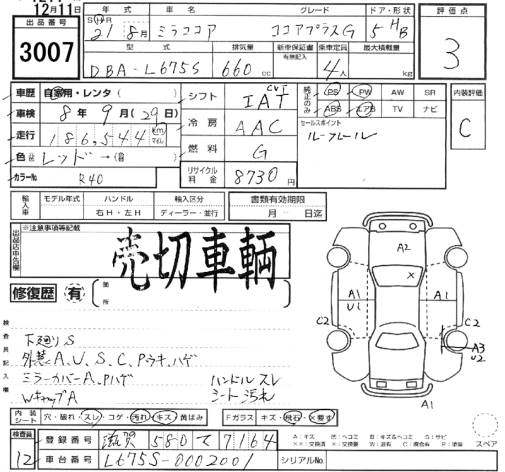 12月11日
出品番号
3007
年式 車名 グレード ドア・形状
S H R 21年 8月 ミラココア ココアプラスG 5 HB
型式 排気量 新車保証書 乗車定員 最大積載量
有無記入
DBA-L675S 660 cc 4人 kg
評価点
3
内装評価
C
車歴 自家用・レンタ( )
車検 8年 9月(29日)
走行 186,544 km マイル
色替 レッド → (替 )
カラーNo R40
シフト IAT CVT
冷房 AAC
燃料 G
リサイクル料金 8730円
純正のみ
PS PW AW SR
ABS エアB TV ナビ
セールスポイント
ルーフレール
輸入車 モデル年式 ハンドル 輸入区分 書類有効期限
年 右H・左H ディーラー・並行 月 日迄
出品店申告欄
※注意事項等記載
売切車輌
修復歴 有 箇所
検査員記入欄
下廻りS
外装A、U、S、C、Pウキ、ハゲ
ミラーカバーA、Pハゲ
WキャップA
ハンドルスレ
シート汚れ
A2
A1 U1
A1
C2
C2
A3 U2
A1
スペア
内装シート 穴・破れ・スレ・コゲ・汚れ・キズ・黄ばみ
Fガラス キズ・飛石・X要す
検査員
12
登録番号 滋賀 580 て 7164
車台番号 L675S-0002001
シリアルNo